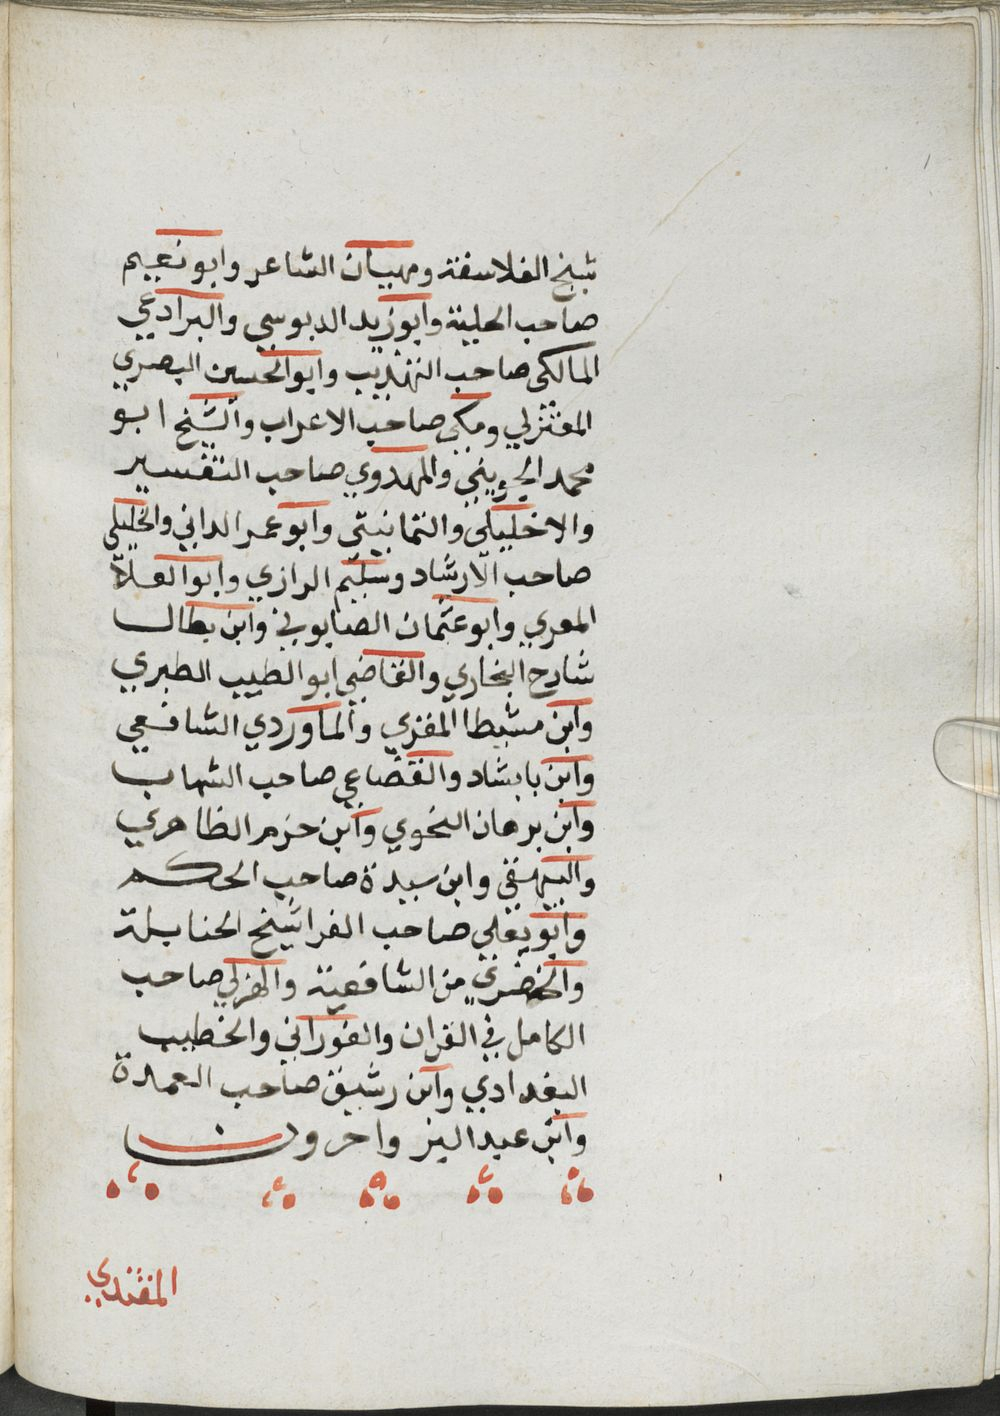 شيخ الفلاسفة ومهيان الشاعر وابو نعيم
صاحب الحلية وابو زيد الدبوسي والبرادعي
المالكى صاحب التهذيب وابو الحسين البصري
المعتزلي ومكي صاحب الاعراب والشيخ ابو
محمد الجويني والمهدوي صاحب التفسير
والاخليلى والثمانينى وابو عمر الداني والخليلى
صاحب الارشاد وسليم الرازي وابو العلا
المعري وابو عثمان الصابوني وابن بطال
شارح البخاري والقاضي ابو الطيب الطبري
وابن مشيطا المقري والماوردي الشافعي
وابن بابشاد والقضاعي صاحب الشهاب
وابن برهان النحوي وابن حزم الظاهري
والبيهقي وابن سيدة صاحب الحكم
وابو يعلي صاحب الفراشيخ الحنابلة
والخضري من الشافعية والهزلي صاحب
الكامل في القران والفوراني والخطيب
البغدادي وابن رشيق صاحب العمدة
وابن عبد البر واخرون
المقتدي